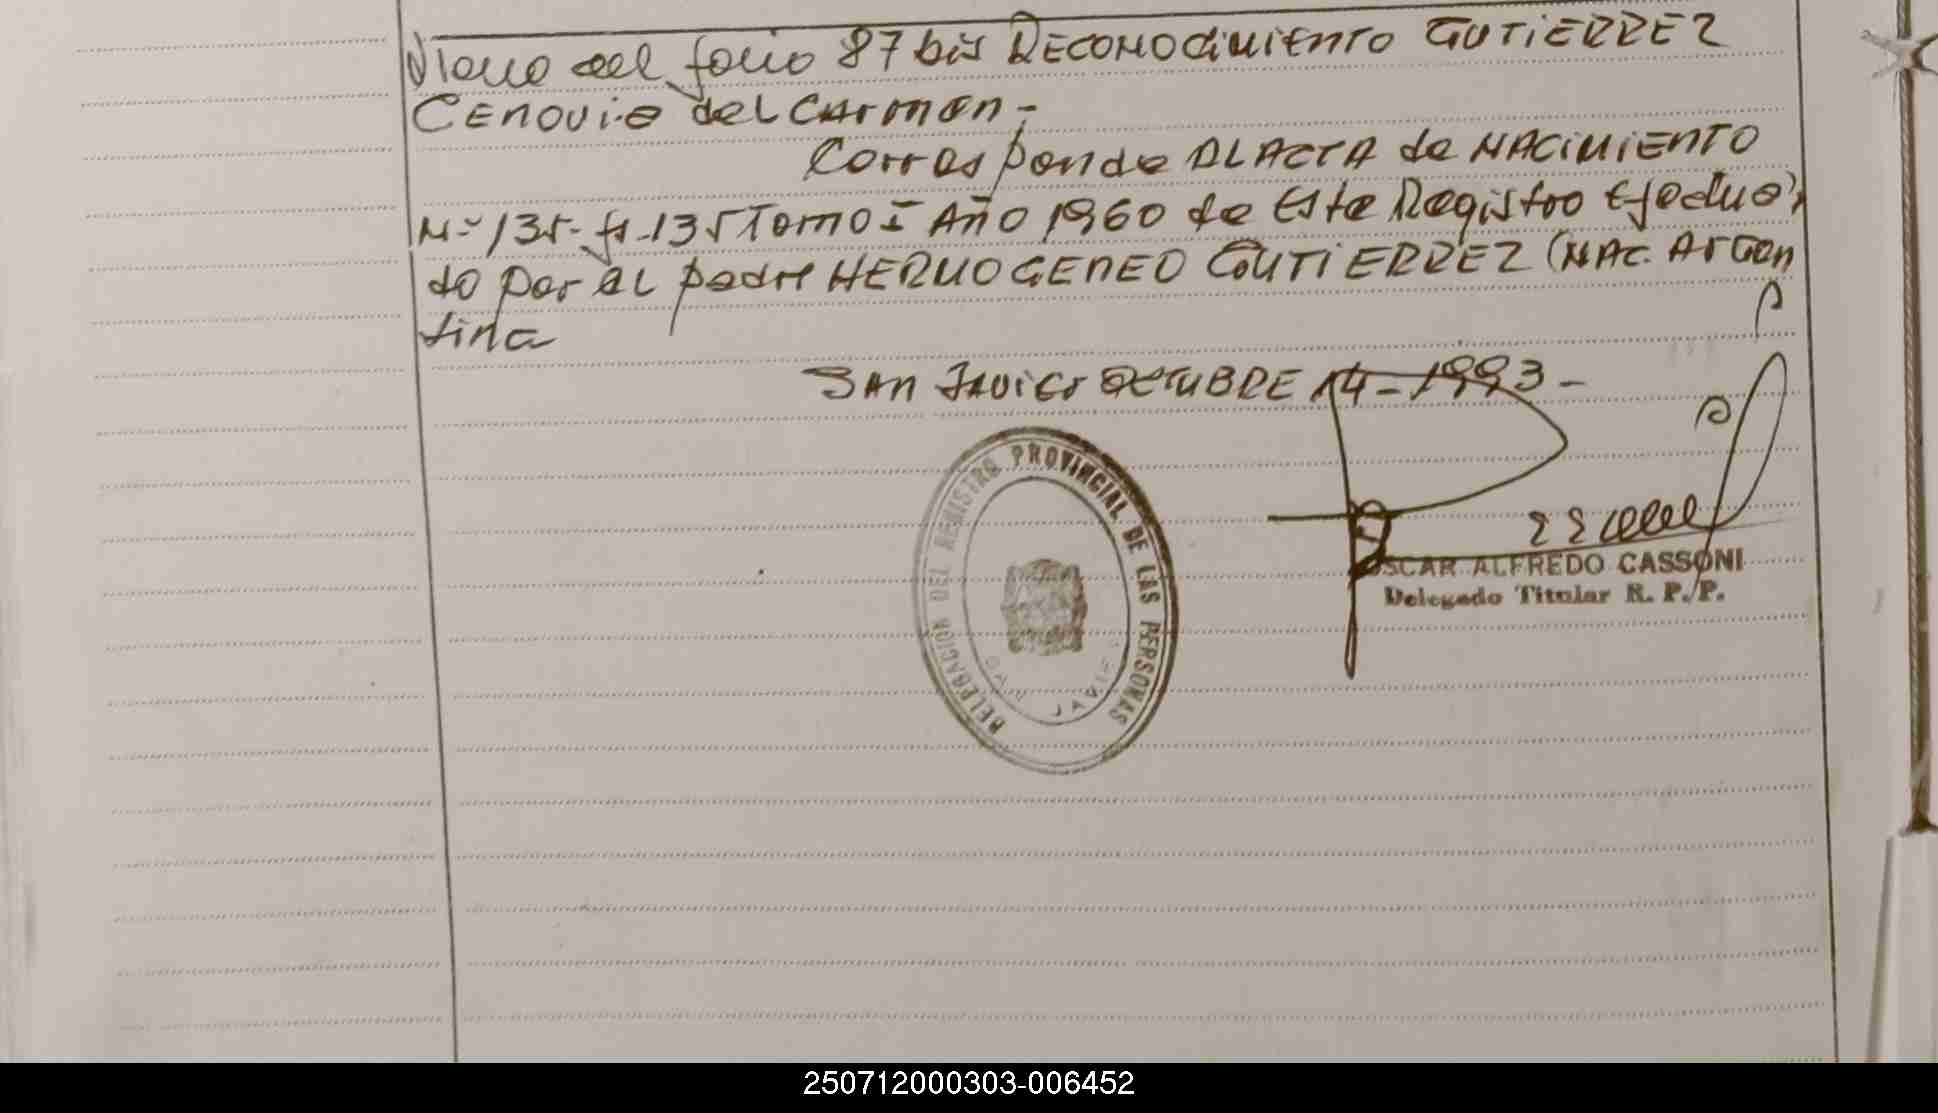 Viene del folio 87 bis RECONOCIMIENTO GUTIERREZ
CENOVIO del CARMEN -
Corresponde AL ACTA de NACIMIENTO
Nº 135 - fº 135 TOMO I AÑO 1960 de Este Registro Efectua
do por el padre HERMOGENEO GUTIERREZ (NAC. Argen
tina
SAN JAVIER OCTUBRE 14 - 1993 -
DELEGACION DEL REGISTRO PROVINCIAL DE LAS PERSONAS
SAN JAVIER
OSCAR ALFREDO CASSONI
Delegado Titular R. P. P.
250712000303-006452